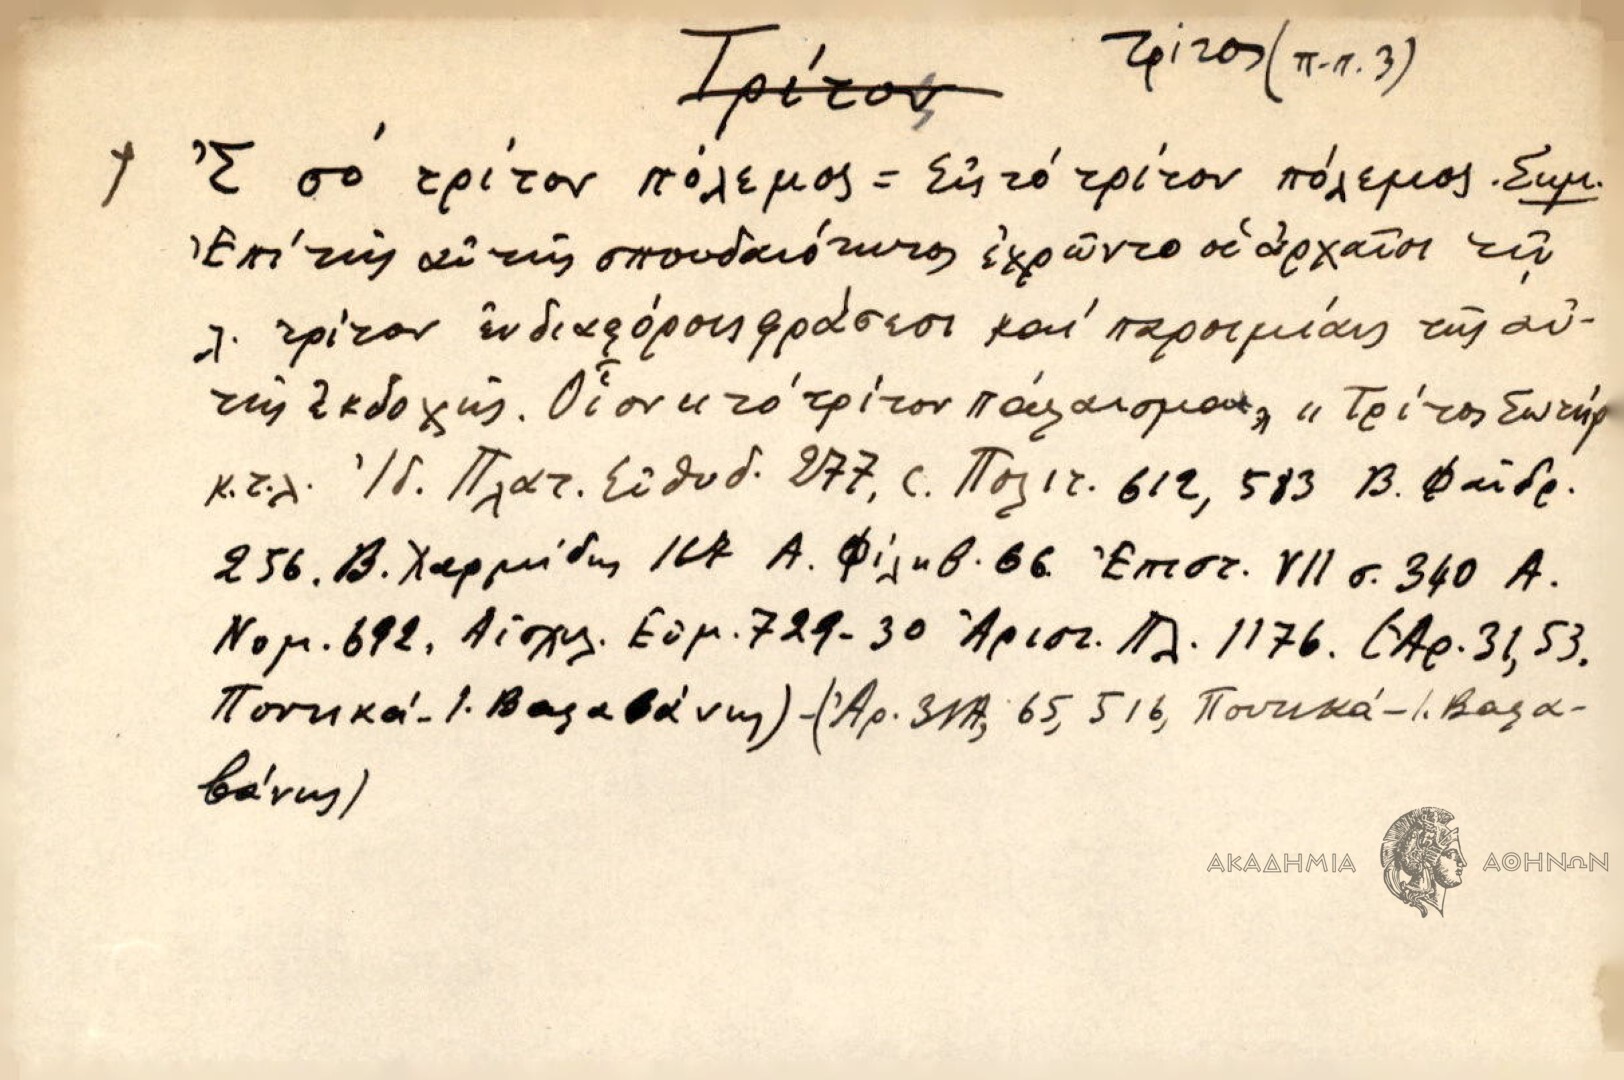 Τρίτος
τρίτος (π-π. 3)
Ἐ σὸ τρίτον πόλεμος = Εἰς τὸ τρίτον πόλεμος. Σημ.
Ἐπὶ τῆς αὐτῆς σπουδαιότητος ἐχρῶντο οἱ ἀρχαῖοι τῇ
λ. τρίτον ἐν διαφόροις φράσεσι καὶ παροιμίαις τῆς αὐ-
τῆς ἐκδοχῆς. Οἷον "τὸ τρίτον πάλαισμα", "Τρίτος Σωτήρ
κ.τ.λ. Ἰδ. Πλατ. Εὐθυδ. 277, C. Πολιτ. 612, 583 Β. Φαῖδρ.
256. Β. Χαρμίδης 167 Α. Φίληβ. 66. Ἐπιστ. VII σ. 340 Α.
Νομ. 692. Αἰσχυλ. Εὐμ. 729-30 Ἀριστ. Πλ. 1176. (Ἀρ. 31, 53.
Ποντικά - Ι. Βαλαβάνης) - (Ἀρ. 31Α, 65, 516, Ποντικά - Ι. Βαλα-
βάνης)
ΑΚΑΔΗΜΙΑ ΑΘΗΝΩΝ